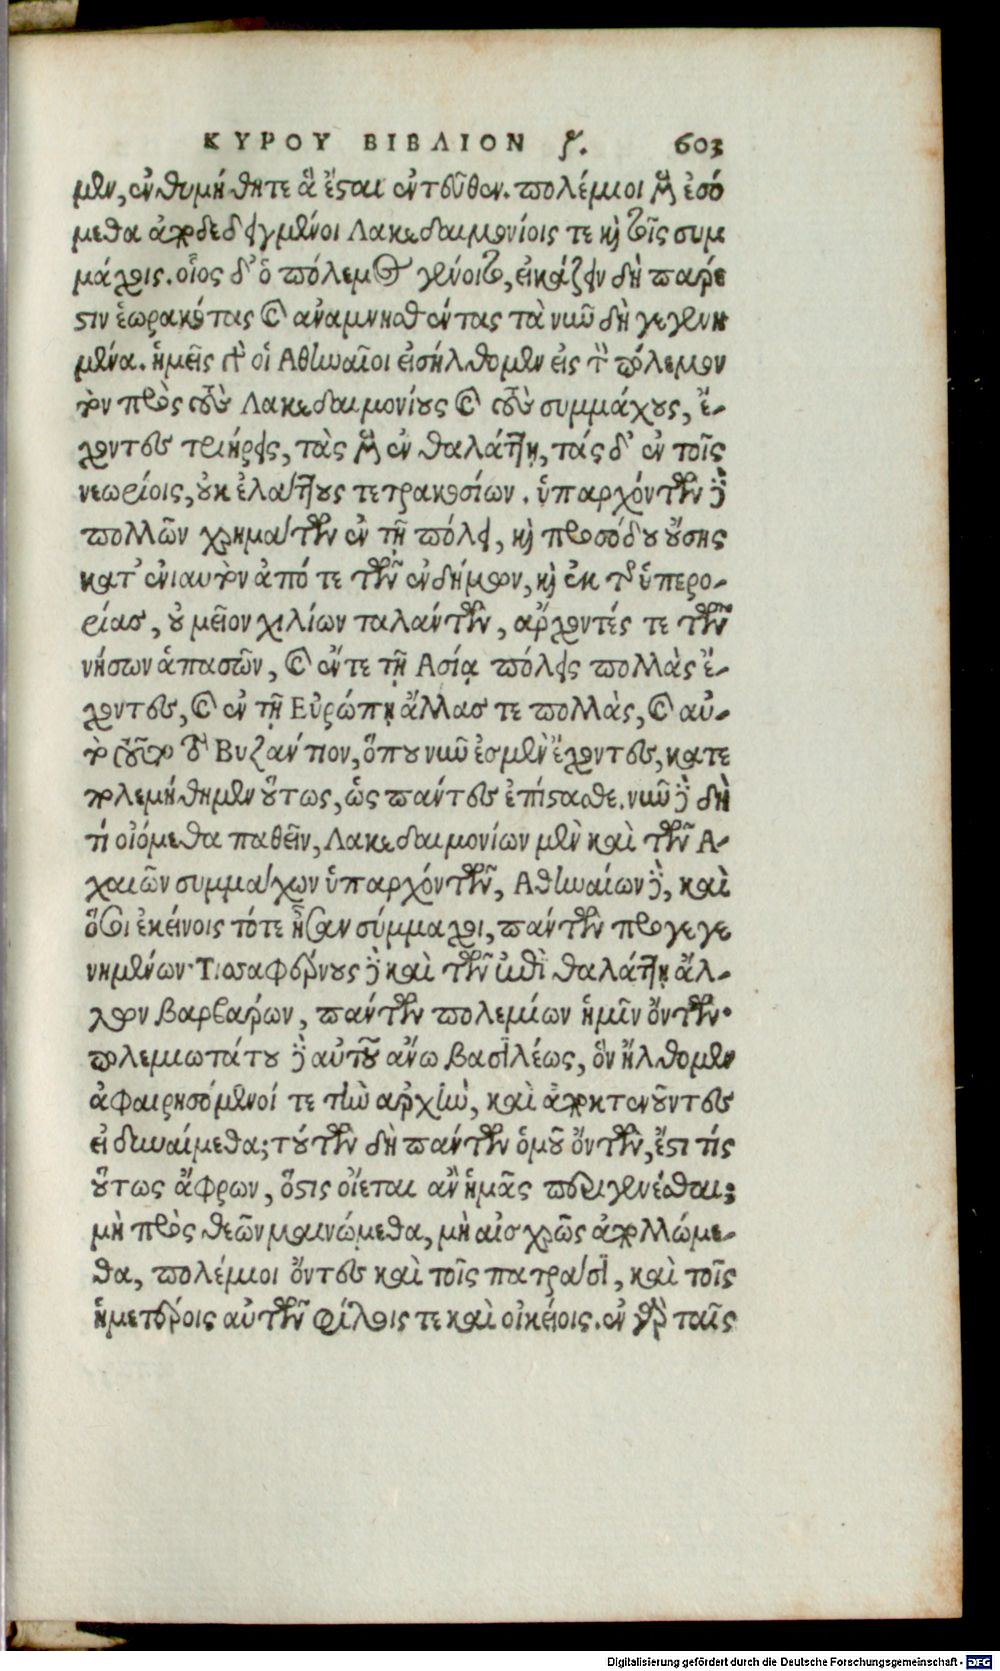 ΚΥΡΟΥ ΒΙΒΛΙΟΝ ζ. 603
μεν, ἐνθυμήθητε ἃ ἔσται ἐντεῦθεν. πολέμιοι μὲν ἐσό
μεθα ἀποδεδειγμένοι Λακεδαιμονίοις τε καὶ τοῖς συμ
μάχοις. οἷος δ' ὁ πόλεμος γένοιτο, εἰκάζειν δὴ πάρε
στιν ἑωρακότας καὶ ἀναμνησθέντας τὰ νῦν δὴ γεγενη
μένα. ἡμεῖς γὰρ οἱ Ἀθηναῖοι εἰσήλθομεν εἰς τὸν πόλεμον
τὸν πρὸς τοὺς Λακεδαιμονίους καὶ τοὺς συμμάχους, ἔ-
χοντες τριήρεις, τὰς μὲν ἐν θαλάττῃ, τάς δ' ἐν τοῖς
νεωρίοις, οὐκ ἐλάττους τετρακοσίων. ὑπαρχόντων δὲ
πολλῶν χρημάτων ἐν τῇ πόλει, καὶ προσόδου οὔσης
κατ' ἐνιαυτὸν ἀπό τε τῶν ἐνδήμων, καὶ ἐκ τῆς ὑπερο-
ρίας, οὐ μεῖον χιλίων ταλάντων, ἄρχοντές τε τῶν
νήσων ἁπασῶν, καὶ ἔν τε τῇ Ασίᾳ πόλεις πολλὰς ἔ-
χοντες, καὶ ἐν τῇ Εὐρώπῃ ἄλλας τε πολλὰς, καὶ αὐ-
τὸ τοῦτο τὸ Βυζάντιον, ὅπου νῦν ἐσμὲν ἔχοντες, κατε
πολεμήθημεν οὕτως, ὡς πάντες ἐπίστασθε. νῦν δὲ δὴ
τί οἰόμεθα παθεῖν, Λακεδαιμονίων μὲν καὶ τῶν Α-
χαιῶν συμμάχων ὑπαρχόντων, Ἀθηναίων δὲ, καὶ
ὅσοι ἐκείνοις τότε ἦσαν σύμμαχοι, πάντων προγεγε
νημένων· Τισσαφέρνους δὲ καὶ τῶν ἐπὶ θαλάττῃ ἄλ-
λων βαρβάρων, πάντων πολεμίων ἡμῖν ὄντων·
πολεμιωτάτου δὲ αὐτοῦ ἄνω βασιλέως, ὃν ἤλθομεν
ἀφαιρησόμενοί τε τὴν ἀρχὴν, καὶ ἀποκτενοῦντες
εἰ δυναίμεθα; τούτων δὴ πάντων ὁμοῦ ὄντων, ἔστι τίς
οὕτως ἄφρων, ὅστις οἴεται ἂν ἡμᾶς περιγενέσθαι;
μὴ πρὸς θεῶν μαινώμεθα, μὴ αἰσχρῶς ἀπολλώμε-
θα, πολέμιοι ὄντες καὶ τοῖς πατράσι, καὶ τοῖς
ἡμετέροις αὐτῶν φίλοις τε καὶ οἰκείοις. ἐν γὰρ ταῖς
Digitalisierung gefördert durch die Deutsche Forschungsgemeinschaft - DFG